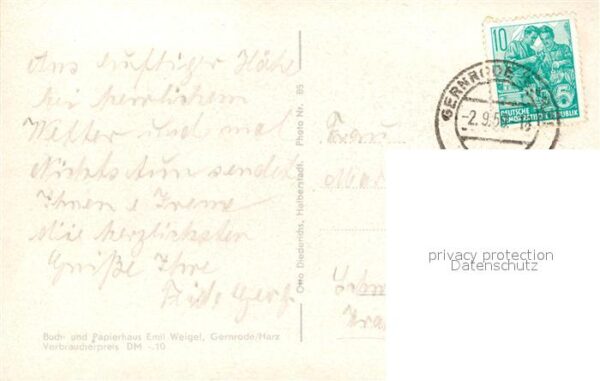 Aus luftiger Höhe
bei herrlichem
Wetter und
Nichtstun sendet
Ihnen
die herzlichsten
Grüße Ihre
Otto Diederichs, Halberstadt. Photo Nr. 85
Buch- und Papierhaus Emil Weigel, Gernrode/Harz
Verbraucherpreis DM -.10
Frau
10
DEUTSCHE
DEMOKRATISCHE REPUBLIK
GERNRODE
-2.9.5
privacy protection
Datenschutz